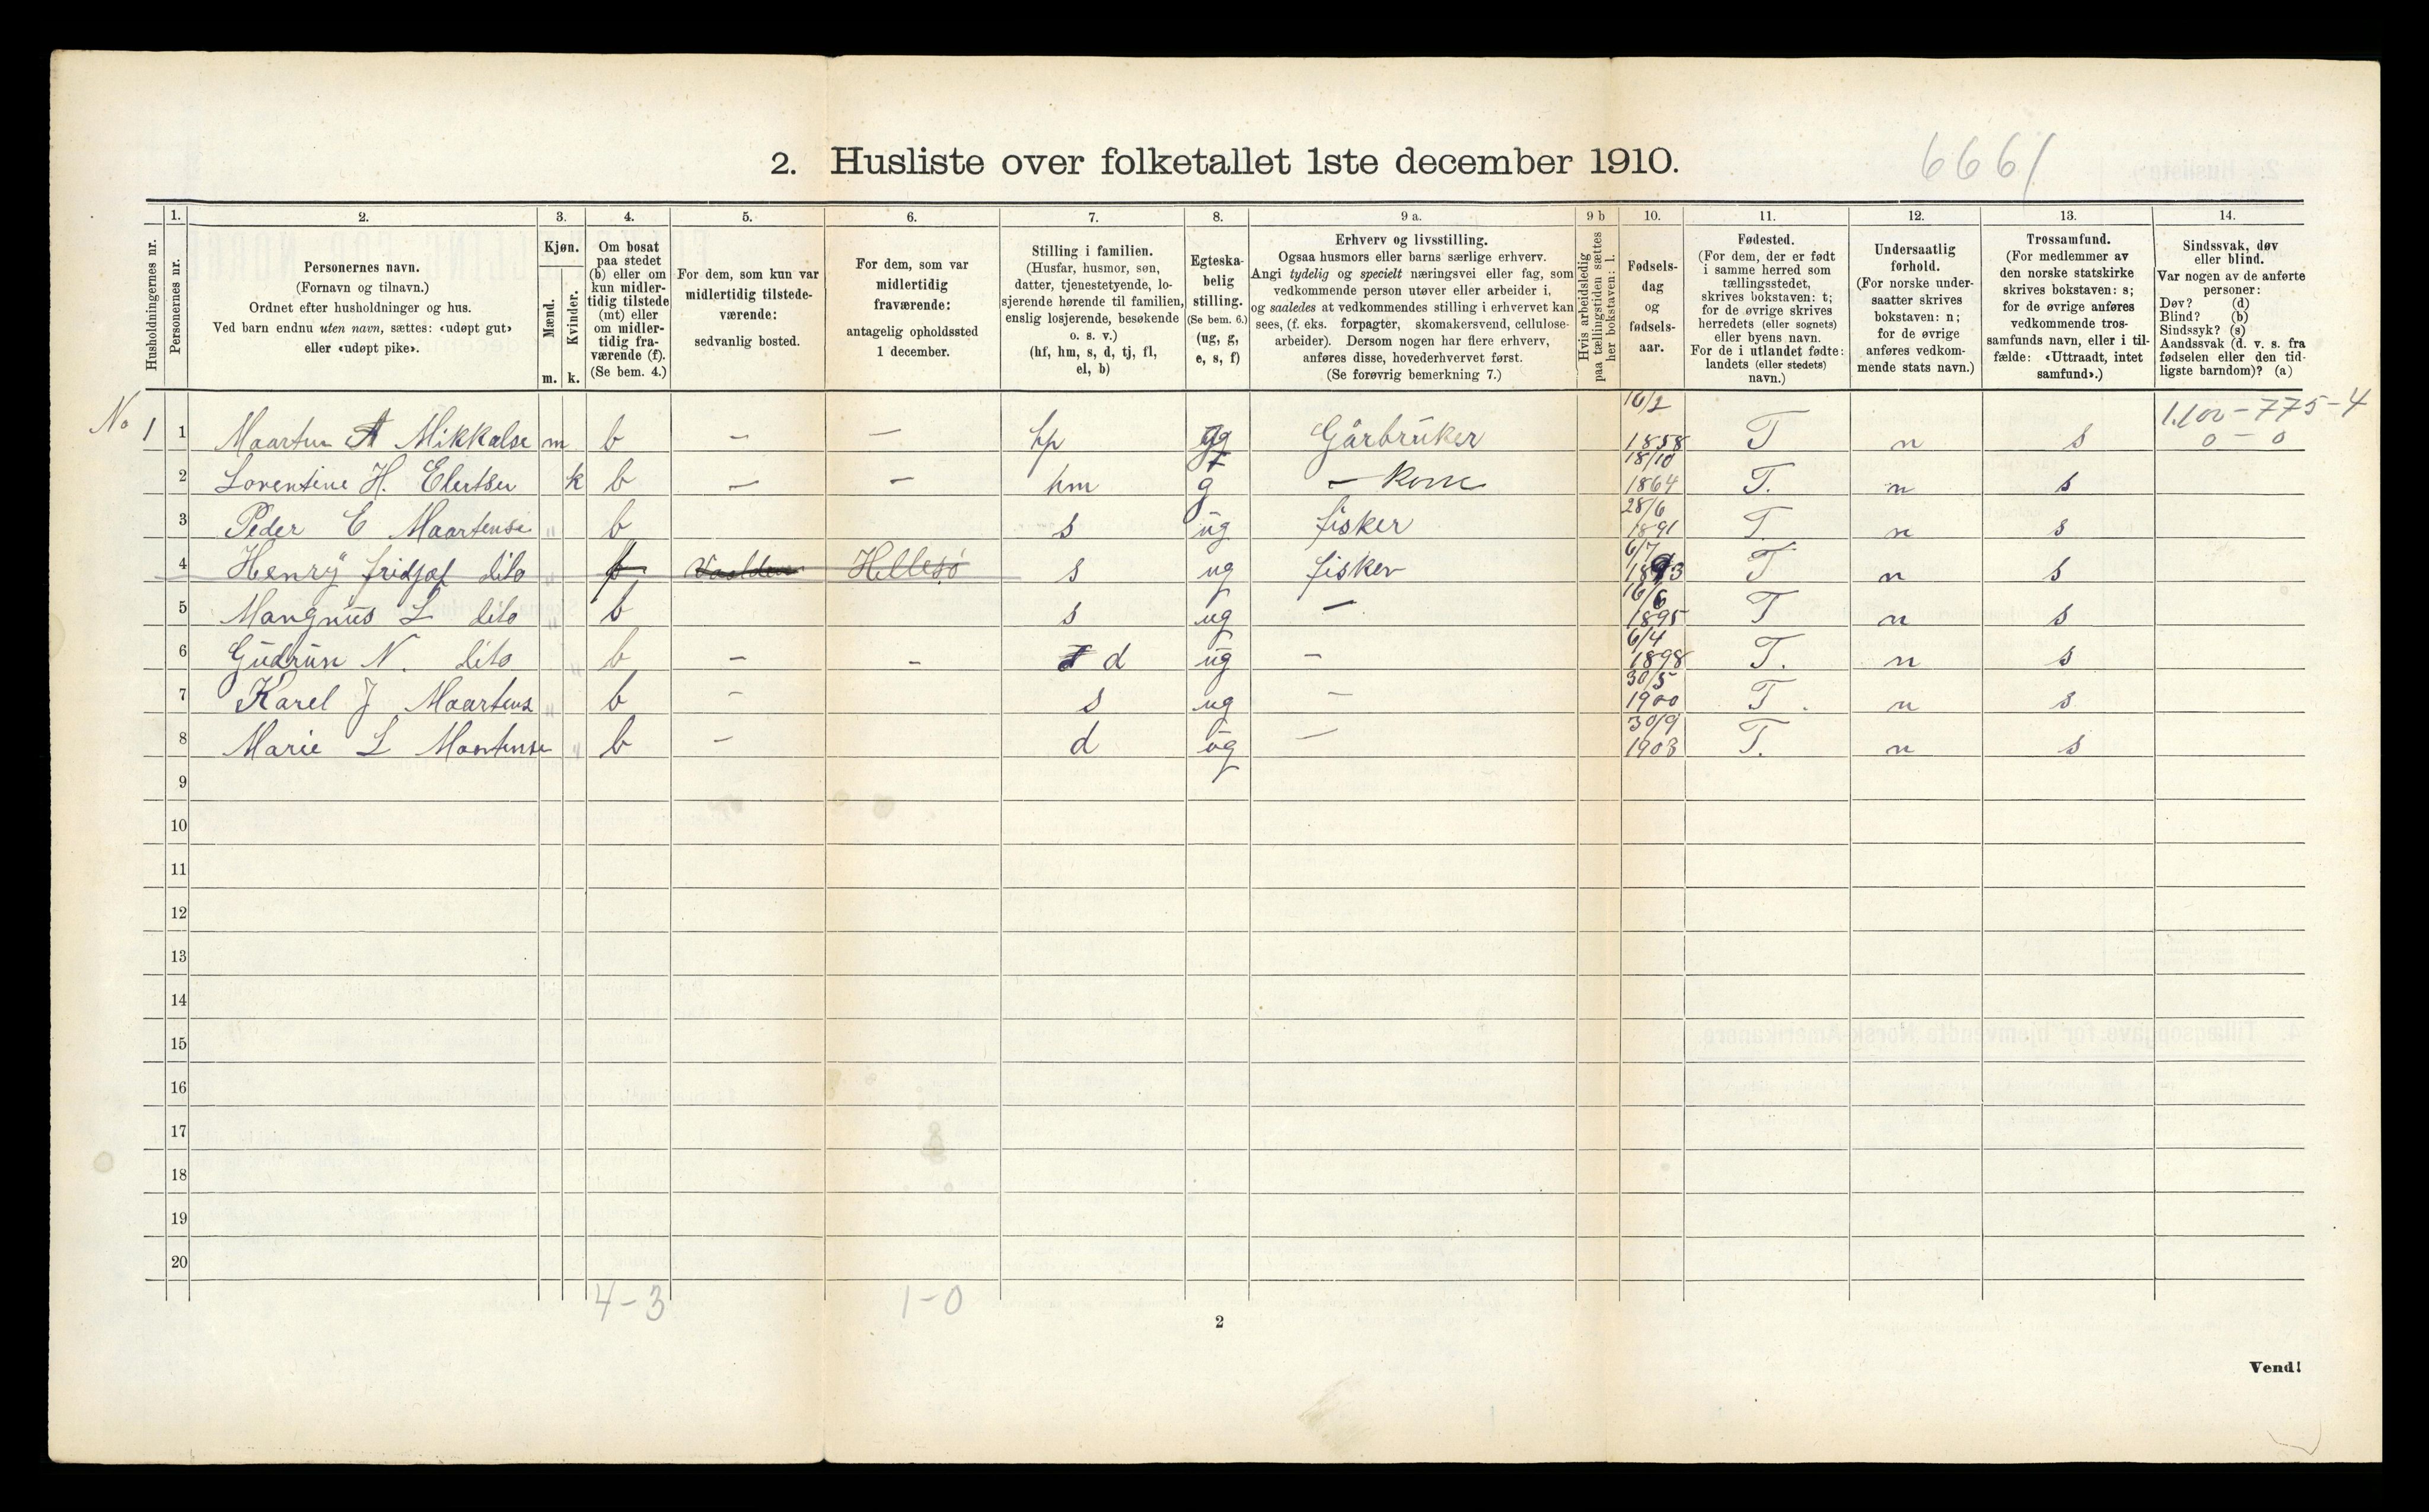 2. Husliste over folketallet 1ste december 1910.
6661
Husholdningernes nr.
1.
Personernes nr.
2.
Personernes navn.
(Fornavn og tilnavn.)
Ordnet efter husholdninger og hus.
Ved barn endnu uten navn, sættes: «udøpt gut»
eller «udøpt pike».
3.
Kjøn.
Mænd.
Kvinder.
m. k.
4.
Om bosat
paa stedet
(b) eller om
kun midler-
tidig tilstede
(mt) eller
om midler-
tidig fra-
værende (f).
(Se bem. 4.)
5.
For dem, som kun var
midlertidig tilstede-
værende:
sedvanlig bosted.
6.
For dem, som var
midlertidig
fraværende:
antagelig opholdssted
1 december.
7.
Stilling i familien.
(Husfar, husmor, søn,
datter, tjenestetyende, lo-
sjerende hørende til familien,
enslig losjerende, besøkende
o. s. v.)
(hf, hm, s, d, tj, fl,
el, b)
8.
Egteska-
belig
stilling.
(Se bem. 6.)
(ug, g,
e, s, f)
9 a.
Erhverv og livsstilling.
Ogsaa husmors eller barns særlige erhverv.
Angi tydelig og specielt næringsvei eller fag, som
vedkommende person utøver eller arbeider i,
og saaledes at vedkommendes stilling i erhvervet kan
sees, (f. eks. forpagter, skomakersvend, cellulose-
arbeider). Dersom nogen har flere erhverv,
anføres disse, hovederhvervet først.
(Se forøvrig bemerkning 7.)
9 b
Hvis arbeidsledig
paa tællingstiden sættes
her bokstaven: l.
10.
Fødsels-
dag
og
fødsels-
aar.
11.
Fødested.
(For dem, der er født
i samme herred som
tællingsstedet,
skrives bokstaven: t;
for de øvrige skrives
herredets (eller sognets)
eller byens navn.
For de i utlandet fødte:
landets (eller stedets)
navn.)
12.
Undersaatlig
forhold.
(For norske under-
saatter skrives
bokstaven: n;
for de øvrige
anføres vedkom-
mende stats navn.)
13.
Trossamfund.
(For medlemmer av
den norske statskirke
skrives bokstaven: s;
for de øvrige anføres
vedkommende tros-
samfunds navn, eller i til-
fælde: «Uttraadt, intet
samfund».)
14.
Sindssvak, døv
eller blind.
Var nogen av de anførte
personer:
Døv? (d)
Blind? (b)
Sindssyk? (s)
Aandssvak (d. v. s. fra
fødselen eller den tid-
ligste barndom)? (a)
1.100-775-4
0-0
No 1 1 Maarten A Mikkalse m b - - hf g Gårbrüker 16/2 1858 T n s
2 Lorentine H. Elertsen k b - - hm g - Kone 18/10 1864 T. n s
3 Peder E Maartense " b s üg fisker 28/6 1891 T. n s
4 Henrÿ fridjof dito " f Hillesö s ug fisker 6/7 1893 T n s
5 Mangnüs L dito " b s ug - 16/6 1895 T n s
6 Güdrün N. dito " b - - d üg - 6/4 1898 T. n s
7 Karel J Maartens " b - s ug - 30/5 1900 T. n s
8 Marie L Maartense " b - d üg - 30/9 1903 T. n s
9
10
11
12
13
14
15
16
17
18
19
20
4-3 1-0
2
Vend!